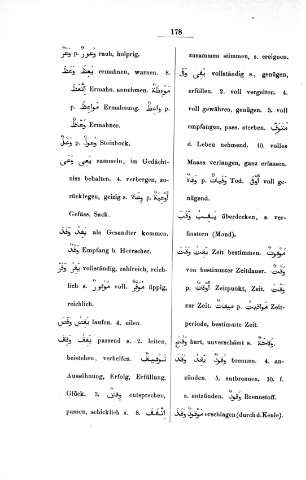 178
وَعْر p. وُعُور rauh, holprig.
وَعَظَ يَعِظُ ermahnen, warnen. 8.
اتَّعَظَ Ermahn. annehmen.
مَوْعِظَة p. مَوَاعِظ Ermahnung. وَاعِظ p.
وُعَّاظ Ermahner.
وَعْل p. وُعُول Steinbock.
وَعَى يَعِي sammeln, im Gedächt-
niss behalten. 4. verbergen, zu-
rücklegen, geizig s. وِعَاء p. أَوْعِيَة
Gefäss, Sack.
وَفَدَ يَفِدُ als Gesandter kommen.
وَفْد Empfang b. Herrscher.
وَفَرَ يَفِرُ vollständig, zahlreich, reich-
lich s. مَوْفُور voll. üppig,
reichlich.
laufen. 4. eilen.
passend s. 2. leiten,
beistehen, verhelfen. تَوْفِيق
Aussöhnung, Erfolg, Erfüllung,
Glück. 3. entsprechen,
passen, schicklich s. 8. اتَّفَقَ
zusammen stimmen, s. ereignen.
وَفَى يَفِي vollständig s., genügen,
erfüllen. 2. voll vergelten. 4.
voll gewähren, genügen. 5. voll
empfangen, pass. sterben.
d. Leben nehmend. 10. volles
Maass verlangen, ganz erfassen.
وَفَاة p. وَفَيَات Tod. voll ge-
nügend.
وَقَبَ يَقِبُ überdecken, a ver-
finstern (Mond).
وَقَتَ يَقِتُ Zeit bestimmen. مَوْقُوت
von bestimmter Zeitdauer. وَقْت
p. أَوْقَات Zeitpunkt, Zeit.
zur Zeit. مِيقَات p. مَوَاقِيت Zeit-
periode, bestimmte Zeit.
hart, unverschämt s.
وَقَدَ يَقِدُ brennen. 4. an-
zünden. 5. entbrennen. 10. f.
s. entzünden. وَقُود Brennstoff.
وَقَذَ erschlagen (durch d. Keule).